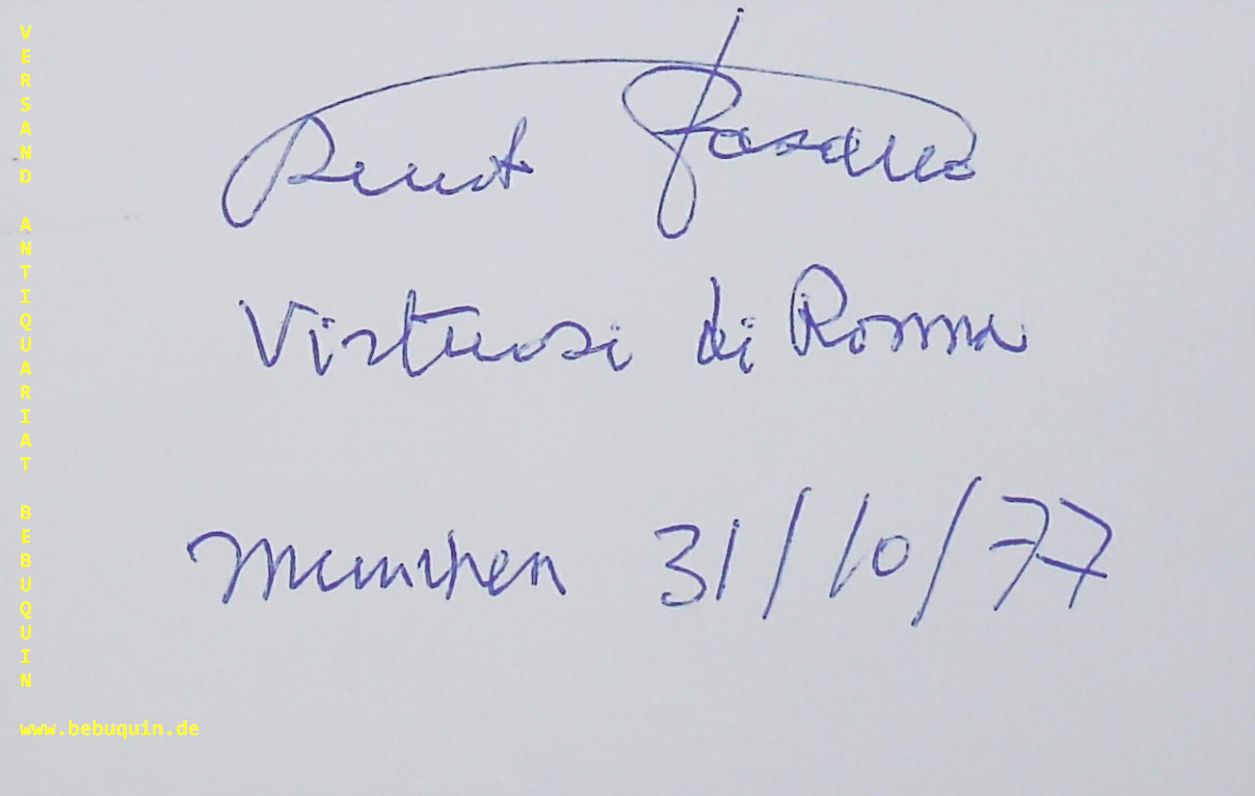 VERSAND ANTIQUARIAT BEBUQUIN
Renato Fasano
Virtuosi di Roma
München 31/10/77
www.bebuquin.de